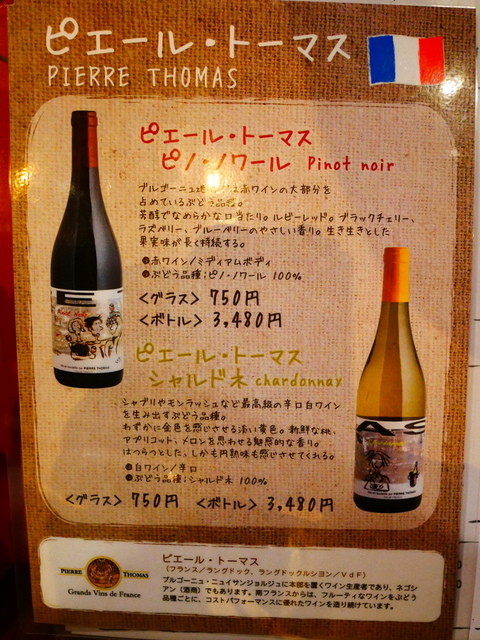 ピエール・トーマス
PIERRE THOMAS
ピエール・トーマス
ピノ・ノワール Pinot noir
ブルゴーニュ地 赤ワインの大部分を
占めているぶどう品種。
芳醇でなめらかな口当たり。ルビーレッド。ブラックチェリー、
ラズベリー、ブルーベリーのやさしい香り。生き生きとした
果実味が長く持続する。
●赤ワイン/ミディアムボディ
●ぶどう品種:ピノ・ノワール 100%
<グラス> 750円
<ボトル> 3,480円
ピエール・トーマス
シャルドネ chardonnay
シャブリやモンラッシュなど最高級の辛口白ワイン
を生み出すぶどう品種。
わずかに金色を感じさせる淡い黄色。新鮮な桃、
アプリコット、メロンを思わせる魅惑的な香り。
はつらつとした、しかも円熟味も感じさせてくれる。
●白ワイン/辛口
●ぶどう品種:シャルドネ 100%
<グラス> 750円 <ボトル> 3,480円
PIERRE THOMAS
Grands Vins de France
ピエール・トーマス
(フランス/ラングドック、ラングドックルシヨン/VdF)
ブルゴーニュ・ニュイサンジョルジュに本部を置くワイン生産者であり、ネゴシ
アン(酒商)でもあります。南フランスからは、フルーティなワインをぶどう
品種ごとに、コストパフォーマンスに優れたワインを造り続けています。